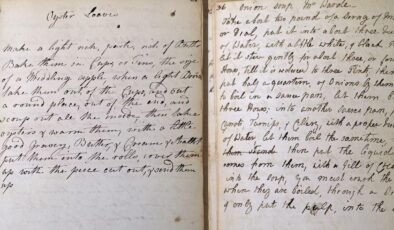 Oyster Loaves
make a light rich, paste, rich of Butter
Bake them in Cups or Tins, the size
of a Middling apple, when a light Brown
take them out of the Cups, and cut
a round place, out of the end, and
scoup out all the inside, then take
oysters & warm them, with a little
good Gravey, Butter, & Cream, & Shallot
put them into the rolls, cover them
up with the piece cut out, & send them
up
36 Onion Soup Mrs
Take about two pound of a Scrag of
or Veal, put it into about three
of Water, with a little white, & black
let it stew gently for about three, or four
Hours, till it is reduced to three
put half a quartern of Onions
to boil in a Sauce pan, let them
three Hours, into another Sauce pan,
Carrots, Turnips, Celery, with a proper
of Water let them boil the same time,
then put the liquid
comes from them, with a Gill of
into the Soup, you must crush the
when they are boiled, through a
& only put the pulp, into the